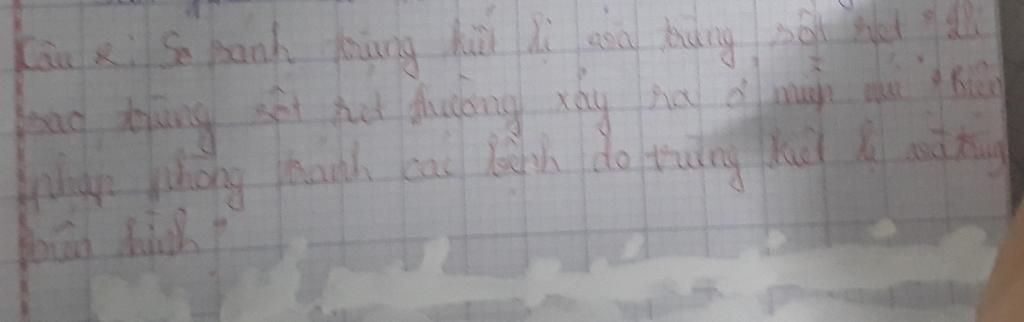 Câu 2: So sánh trùng kiết lị và trùng sốt rét? Tại
sao trùng sốt rét thường xảy ra ở miền núi? Biện
pháp phòng tránh các bệnh do trùng kiết lị và trùng
biến hình?